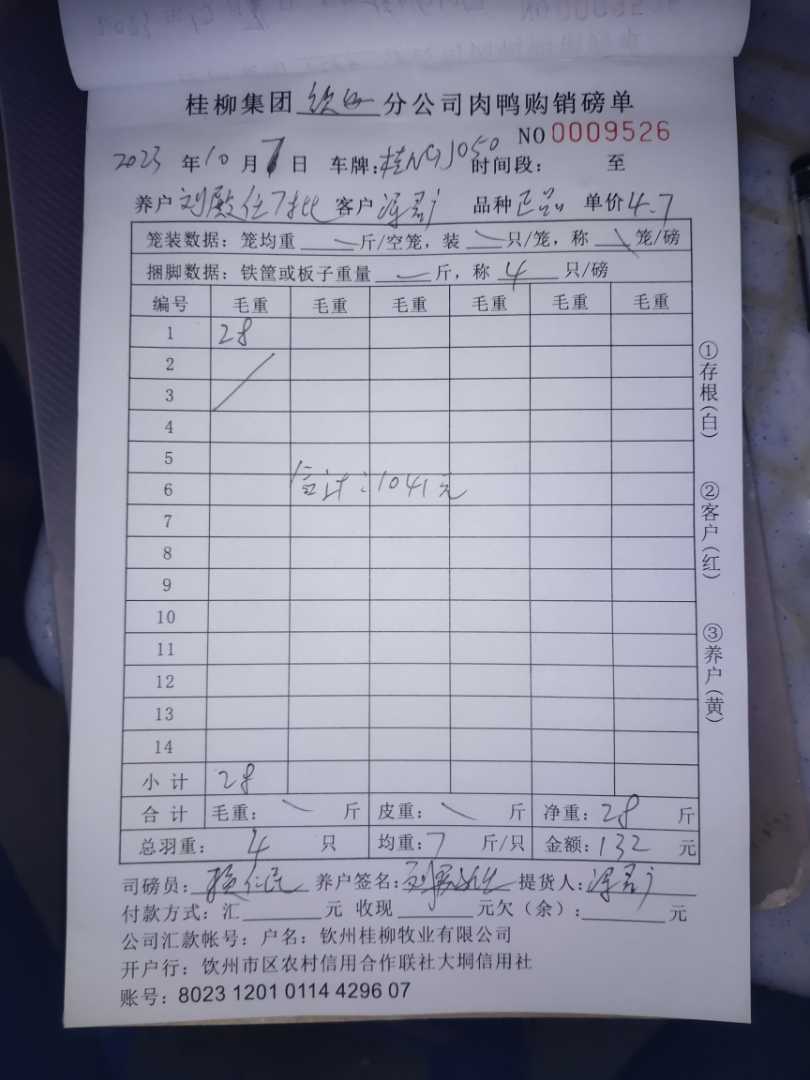 桂柳集团钦州分公司肉鸭购销磅单
NO 0009526
2023年10月7日 车牌:桂N 时间段: 至
养户刘殿仕7批 客户 品种正品 单价4.7
笼装数据:笼均重 斤/空笼,装 只/笼,称 笼/磅
捆脚数据:铁筐或板子重量 斤,称 4 只/磅
编号 毛重 毛重 毛重 毛重 毛重 毛重
1 28
2
3
4
5
6 合计:1041元
7
8
9
10
11
12
13
14
小计 28
合计 毛重: 斤 皮重: 斤 净重:28斤
总羽重: 4 只 均重:7 斤/只 金额:132元
司磅员: 养户签名: 提货人:
付款方式:汇 元 收现 元欠(余): 元
公司汇款帐号:户名:钦州桂柳牧业有限公司
开户行:饮州市区农村信用合作联社大垌信用社
账号:8023 1201 0114 4296 07
①存根(白)
②客户(红)
③养户(黄)